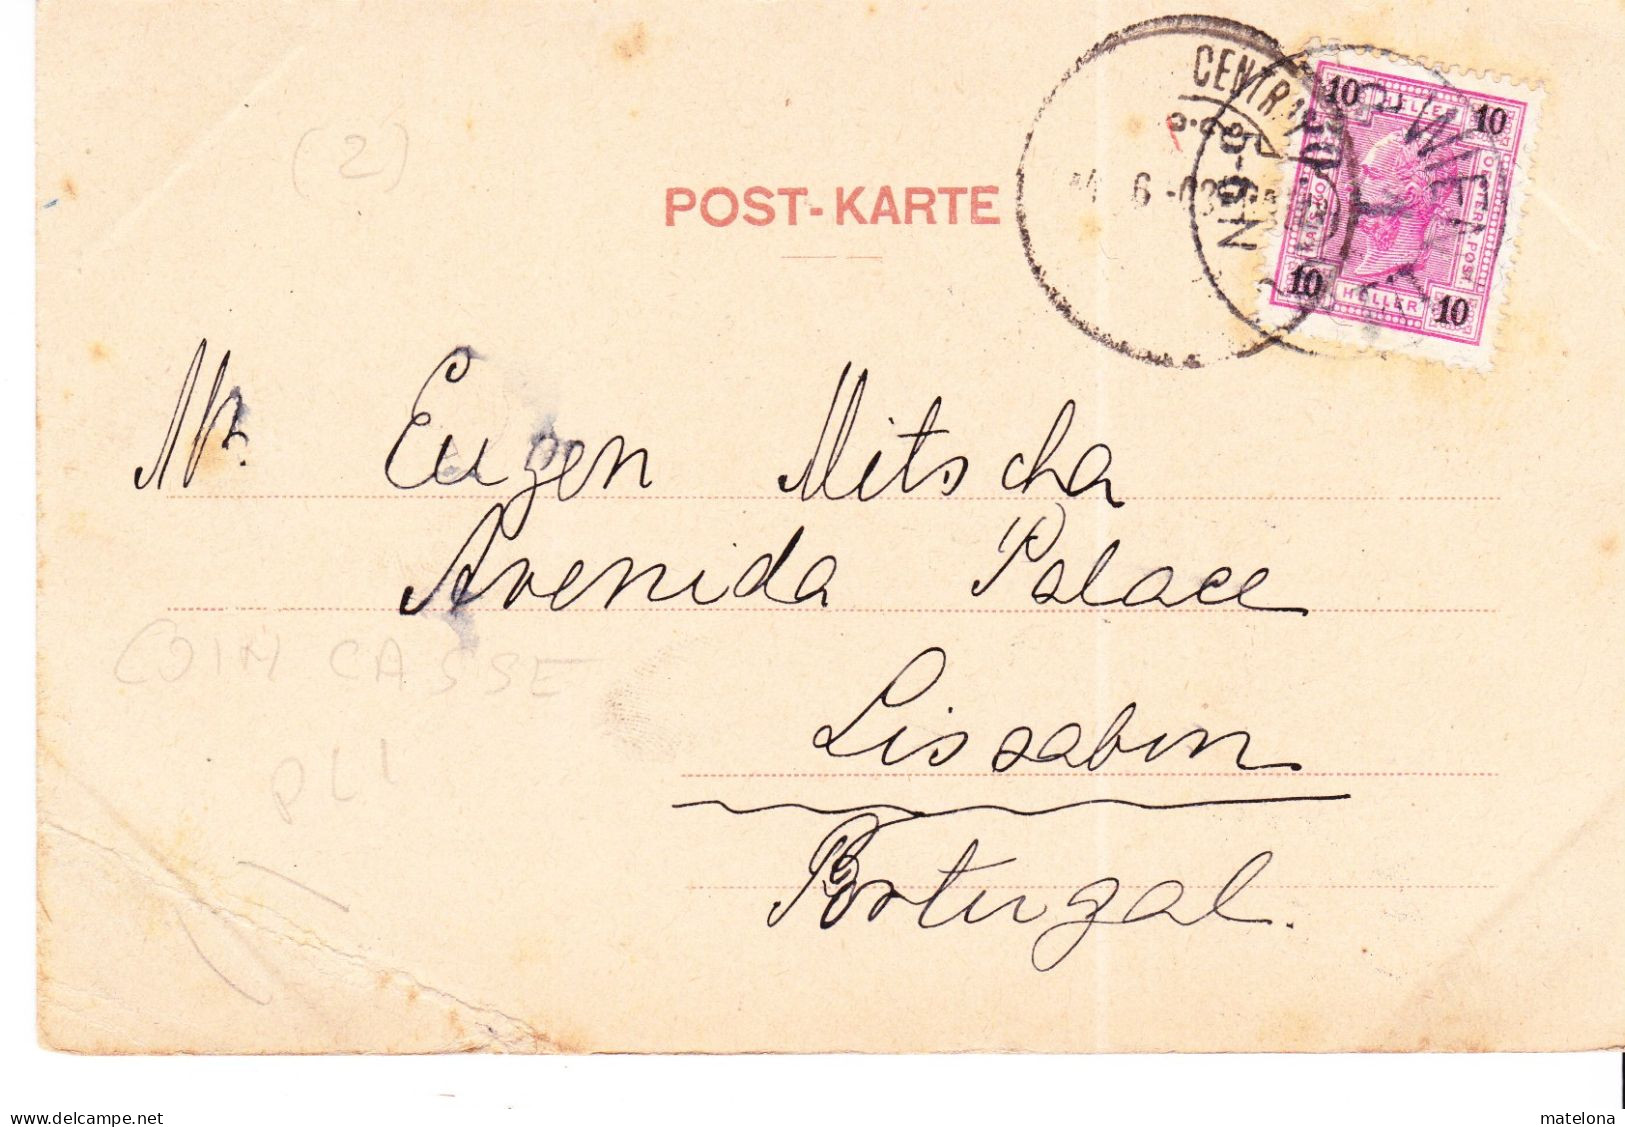 (2)
POST-KARTE
CENTRAL
6-03
WIEN
10 HELLER 10
10 HELLER 10
Mr. Eugen Mitscha
Avenida Palace
Lissabon
Portugal.
COIN CASSE
PLI
www.delcampe.net
matelona